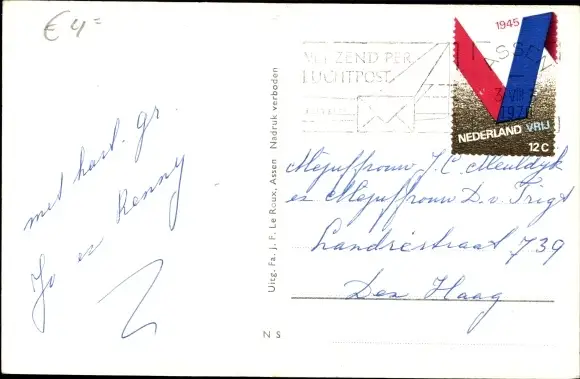 € 4=
met hart. gr.
Jo en Renny
Uitg. Fa. J. F. Le Roux, Assen Nadruk verboden
N S
ZEND PER
LUCHTPOST
ASSEN
1945
NEDERLAND VRIJ
12 C
Mejuffrouw J. C. Meuldyk
en Mejuffrouw D. v. Trigt
Landréstraat 739
Den Haag